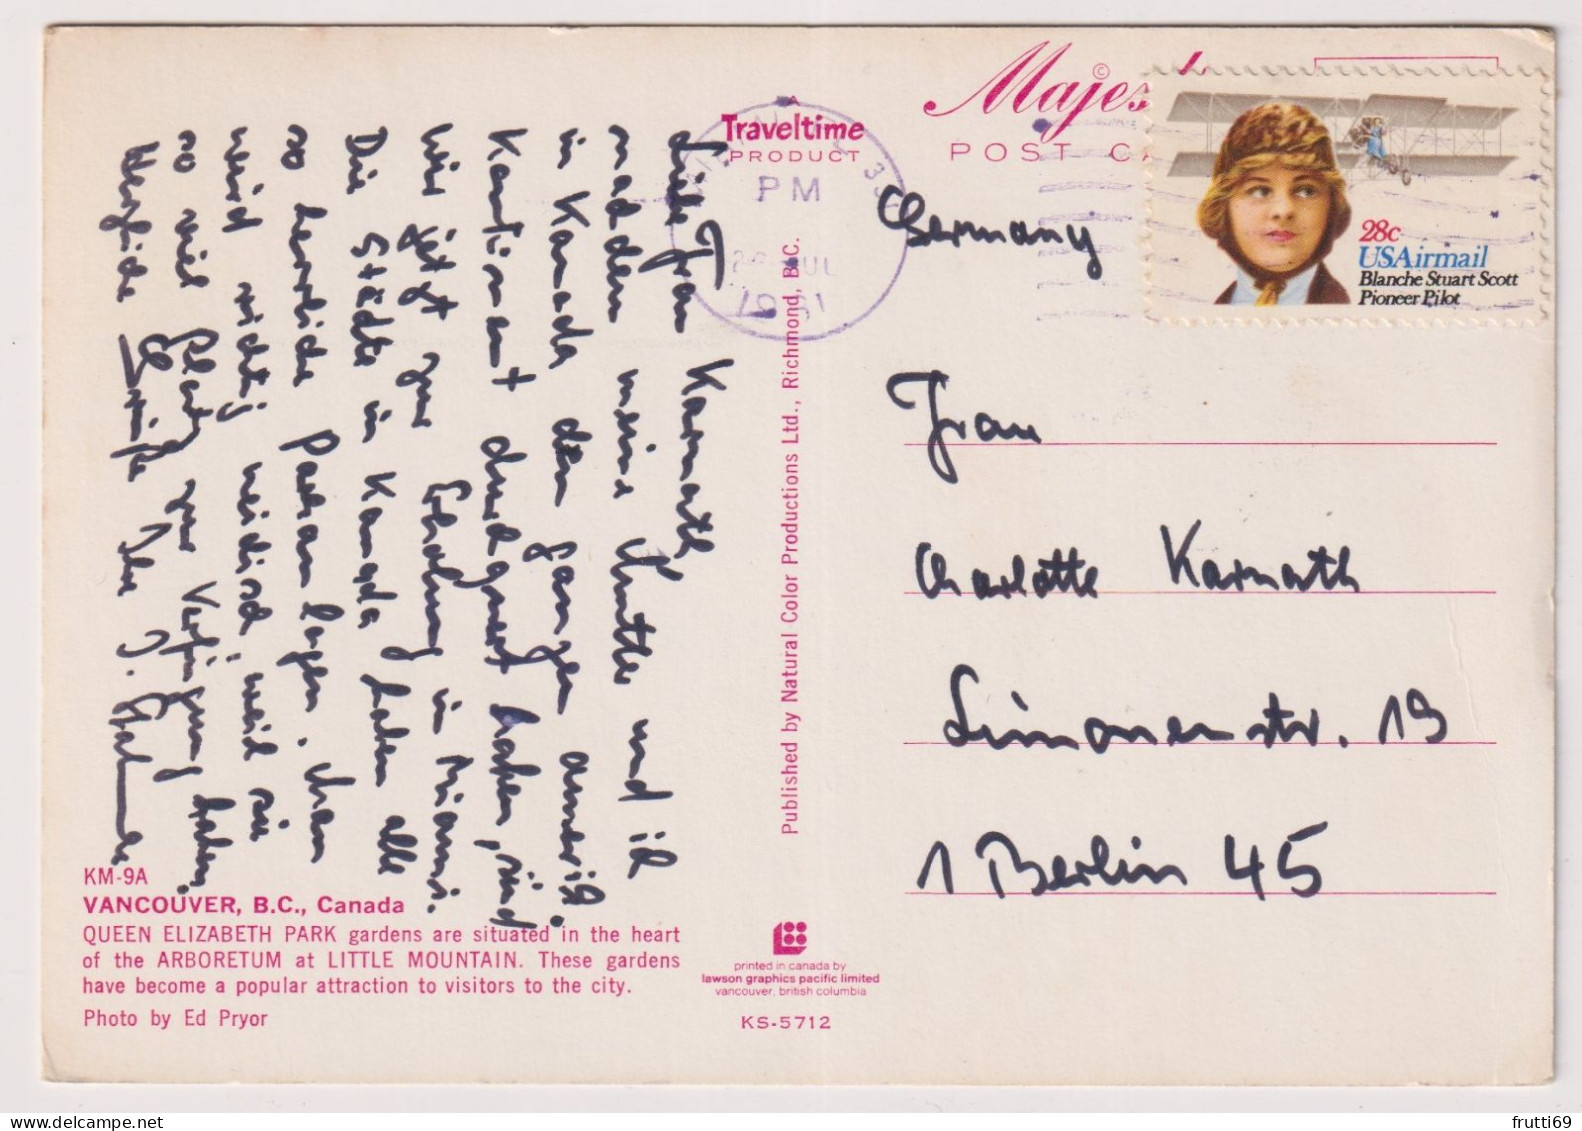 Liebe Frau Karnath,
meine Mutter und ich
in Kanada den ganzen amerik.
Kontinent durchquert haben, sind
wir jetzt zur Erholung in Miami.
Die Städte in Kanada haben alle
so herrliche Parkanlagen. Man
wird richtig neidisch, weil sie
so viel Platz zur Verfügung haben.
Herzliche Grüße Ihre
Traveltime
PRODUCT
PM
JUL
1981
Majes
POST CA
28c
USAirmail
Blanche Stuart Scott
Pioneer Pilot
Germany
Frau
Charlotte Karnath
Limonenstr. 19
1 Berlin 45
Published by Natural Color Productions Ltd., Richmond, B.C.
KM-9A
VANCOUVER, B.C., Canada
QUEEN ELIZABETH PARK gardens are situated in the heart
of the ARBORETUM at LITTLE MOUNTAIN. These gardens
have become a popular attraction to visitors to the city.
Photo by Ed Pryor
printed in canada by
lawson graphics pacific limited
vancouver, british columbia
KS-5712
frutti69